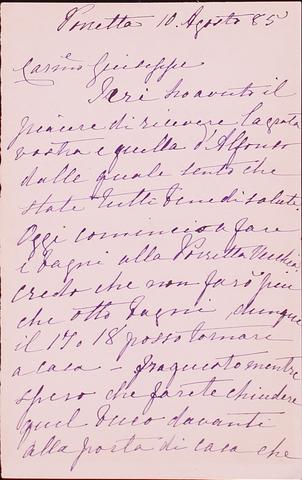 Porretta 10 Agosto 85
Carmo Giuseppe
Ieri ho avuto il
piacere di ricevere la grata
vostra e quella d'Alfonso
dalle quale sento che
state tutti bene di salute.
Oggi comincio a fare
i bagni alla Porretta Vecchia
credo che non farò più
che otto bagni dunque
il 17 o 18 posso tornare
a casa – fraquatomentre
spero che farete chiudere
quel buco davanti
alla porta di casa che